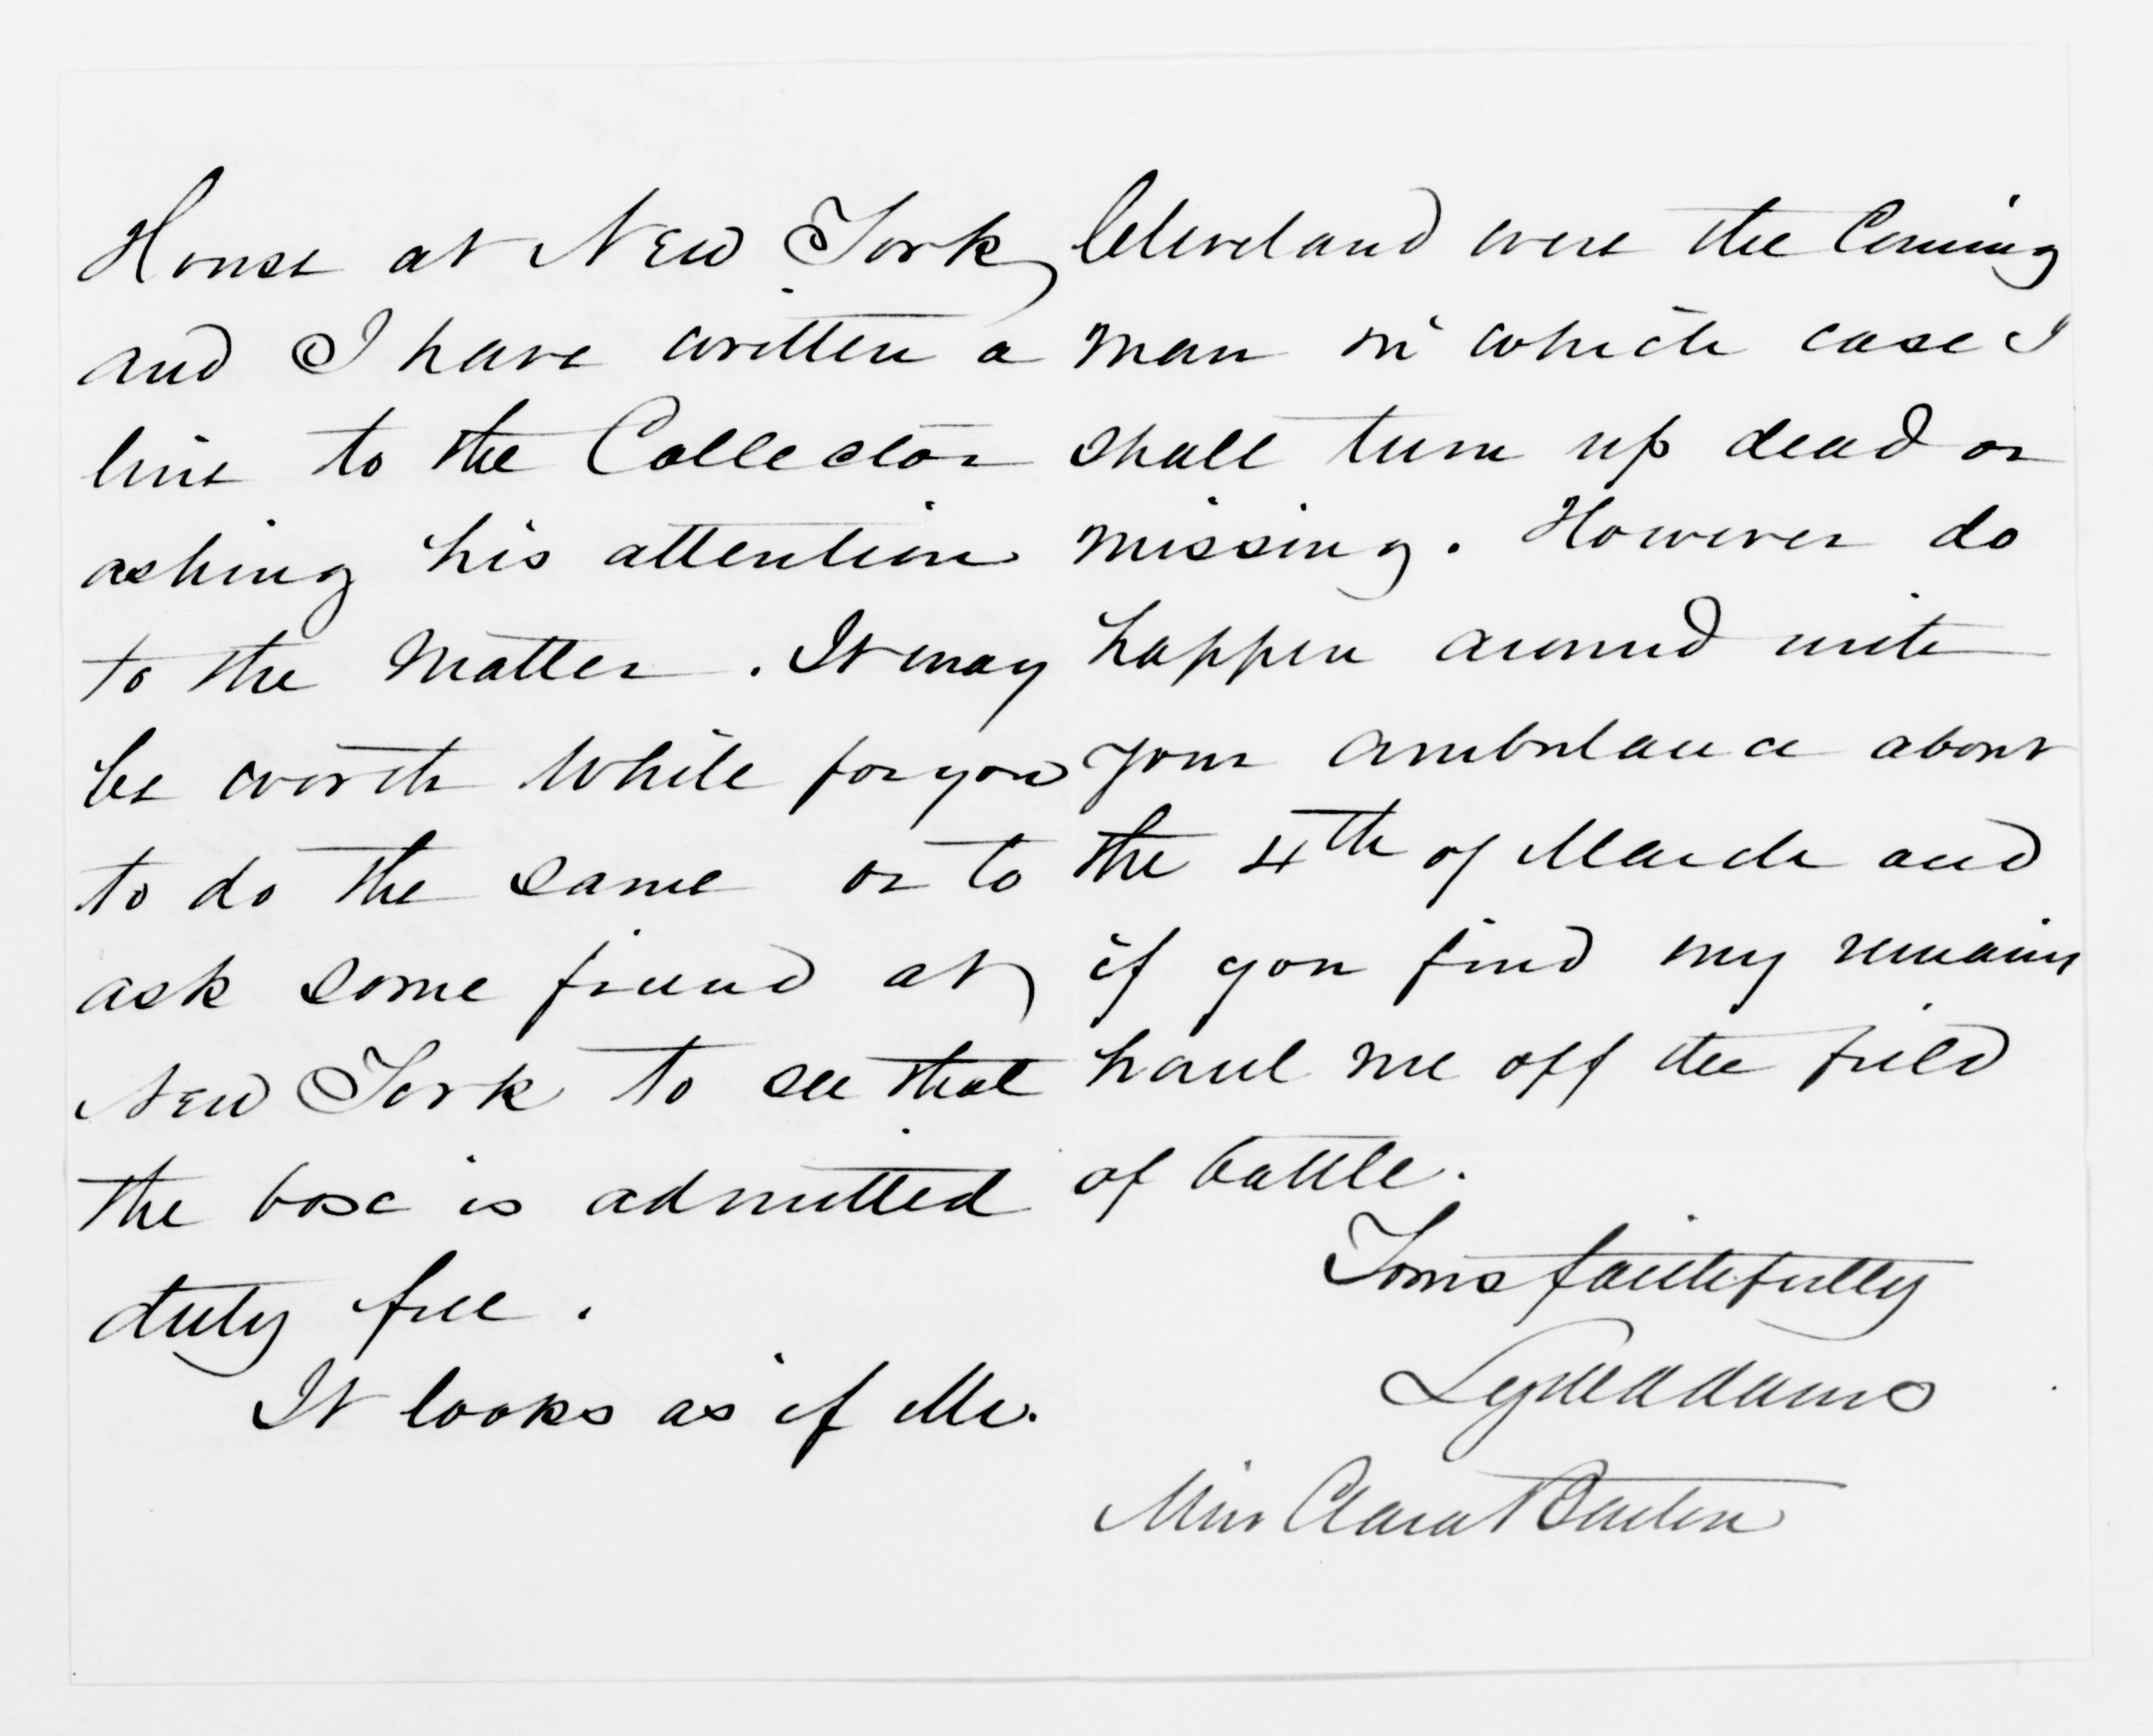 House at New York,
and I have written a
line to the Collector
asking his attention
to the matter. It may
be worth while for you
to do the same or to
ask some friend at
New York to see that
the box is admitted
duty free.
It looks as if Mr.
Cleveland were the Coming
man in which case I
shall turn up dead or
missing. However do
happen around with
your ambulance about
the 4th of March and
if you find my remains
haul me off the field
of battle.
Yours faithfully
Adams
Miss Clara Barton